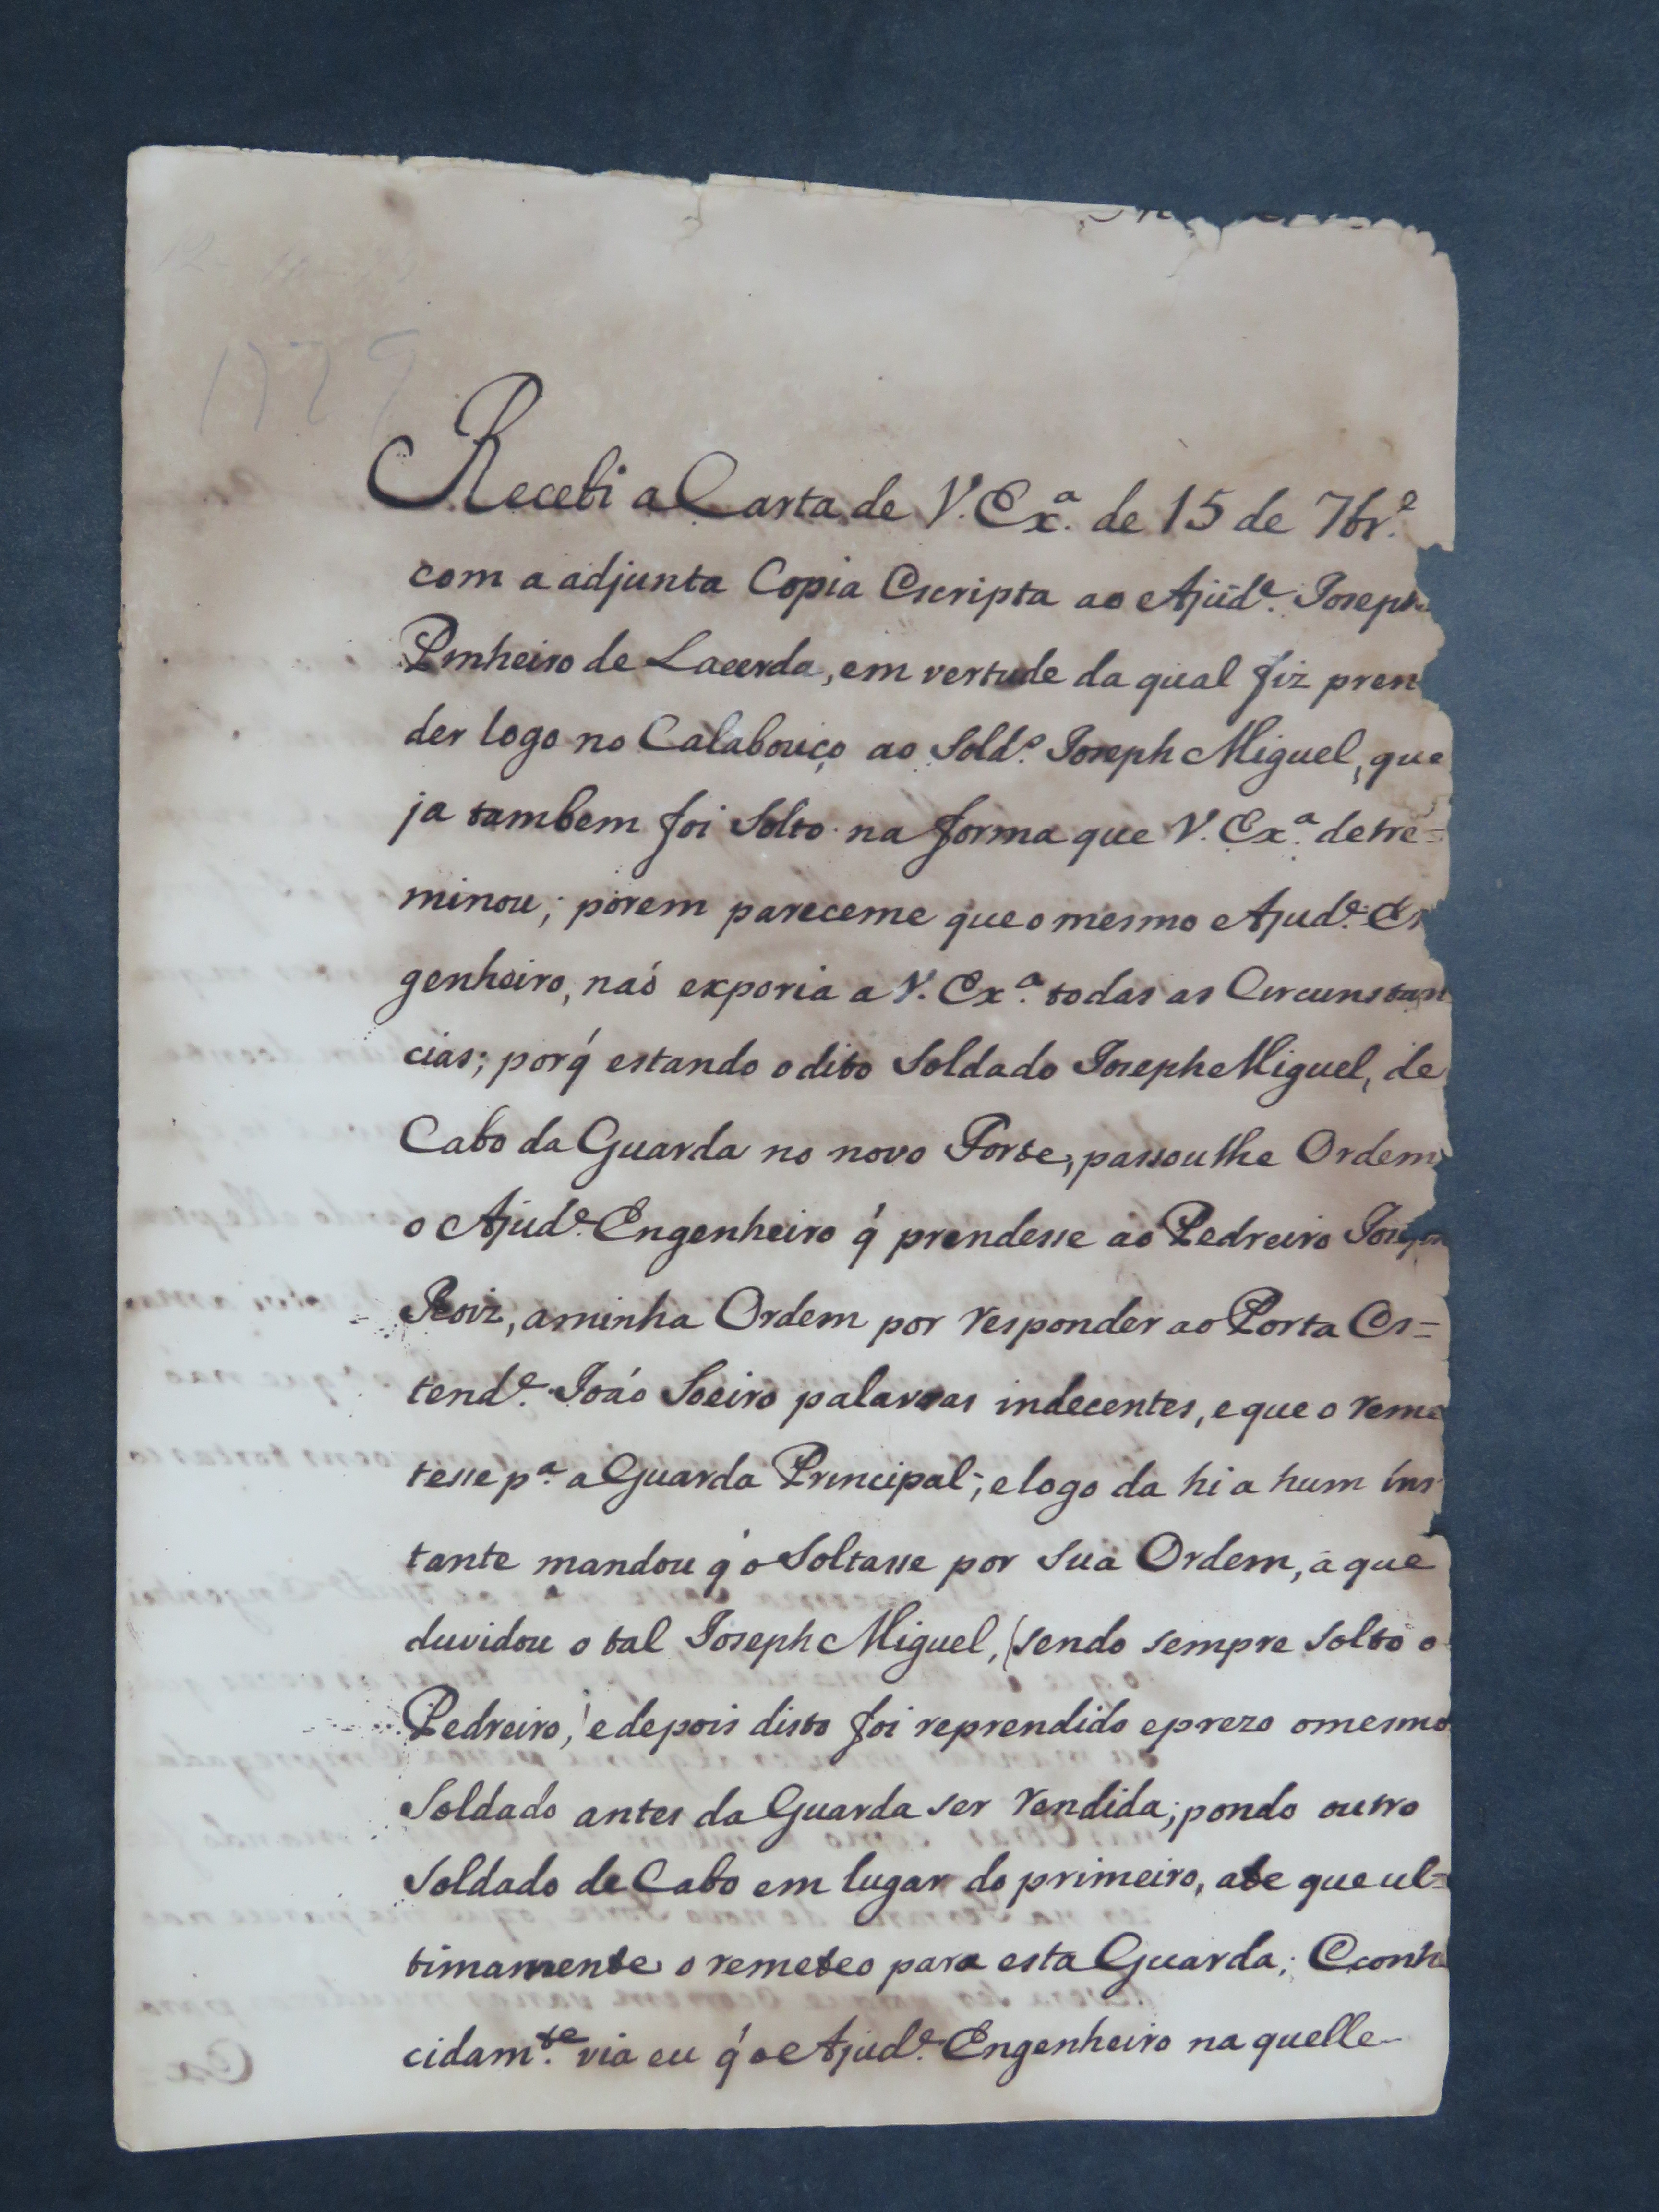 1779
Recebi a Carta de V. Ex.ª de 15 de 7br.º
com a adjunta Copia Escripta ao Ajud.e Joseph
Pinheiro de Lacerda, em vertude da qual fiz pren
der logo no Calabouço ao Sold.º Joseph Miguel, que
ja tambem foi Solto na forma que V. Ex.ª detre=
minou; porem pareceme que o mesmo Ajud.e En
genheiro, naõ exporia a V. Ex.ª todas as Circunstan
cias; porq̃ estando o dito Soldado Joseph Miguel, de
Cabo da Guarda no novo Forte, passoulhe Ordem
o Ajud.e Engenheiro q̃ prendesse ao Pedreiro Joseph
Roiz, a minha Ordem por responder ao Porta Es=
tend.e Joaõ Soeiro palavras indecentes, e que o reme
tesse p.ª a Guarda Principal; e logo da hi a hum ins
tante mandou q̃ o Soltasse por Sua Ordem, a que
duvidou o tal Joseph Miguel, (sendo sempre Solto o
Pedreiro,) e depois disto foi reprendido e prezo o mesmo
Soldado antes da Guarda ser rendida; pondo outro
Soldado de Cabo em lugar do primeiro, ate que ul=
timamente o remeteo para esta Guarda; Econhe
cidam.te via eu q̃ o Ajud.e Engenheiro na quelle